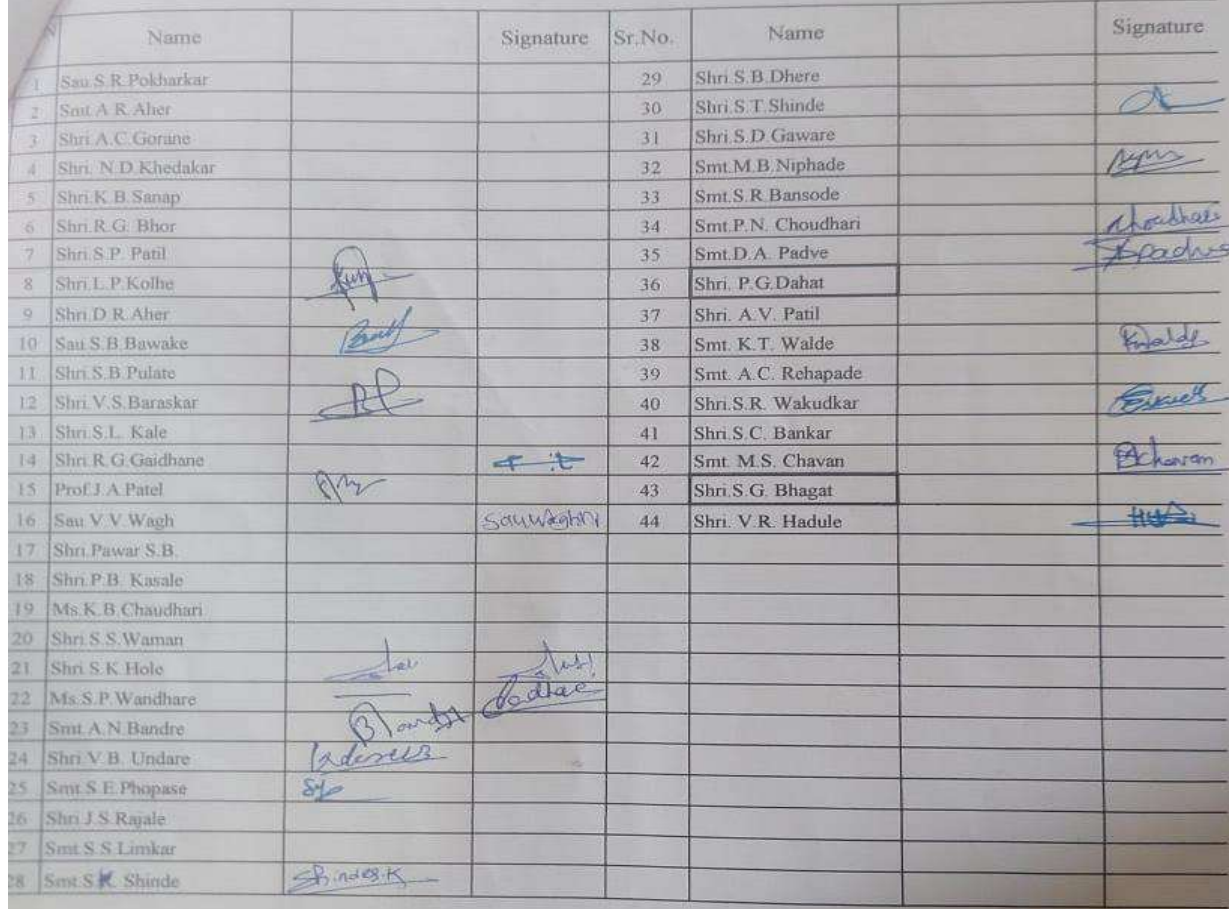 Name Signature Sr.No. Name Signature
1 Sau.S.R.Pokharkar 29 Shri.S.B.Dhere
2 Smt.A.R.Aher 30 Shri.S.T.Shinde
3 Shri.A.C.Gorane 31 Shri.S.D.Gaware
4 Shri. N.D.Khedakar 32 Smt.M.B.Niphade
5 Shri.K.B.Sanap 33 Smt.S.R.Bansode
6 Shri.R.G. Bhor 34 Smt.P.N. Choudhari
7 Shri.S.P. Patil 35 Smt.D.A. Padve
8 Shri.L.P.Kolhe 36 Shri. P.G.Dahat
9 Shri.D.R.Aher 37 Shri. A.V. Patil
10 Sau.S.B.Bawake 38 Smt. K.T. Walde
11 Shri.S.B.Pulate 39 Smt. A.C. Rehapade
12 Shri.V.S.Baraskar 40 Shri.S.R. Wakudkar
13 Shri.S.L. Kale 41 Shri.S.C. Bankar
14 Shri.R.G.Gaidhane 42 Smt. M.S. Chavan
15 Prof.J.A.Patel 43 Shri.S.G. Bhagat
16 Sau.V.V.Wagh 44 Shri. V.R. Hadule
17 Shri.Pawar S.B.
18 Shri.P.B. Kasale
19 Ms.K.B.Chaudhari
20 Shri.S.S.Waman
21 Shri.S.K.Hole
22 Ms.S.P.Wandhare
23 Smt.A.N.Bandre
24 Shri.V.B. Undare
25 Smt.S.E.Phopase
26 Shri.J.S.Rajale
27 Smt.S.S.Limkar
28 Smt.S.K. Shinde Shinde S.K